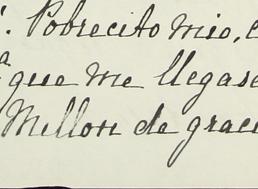 . Pobrecito mio, e
a que me llegase
Millon de graci